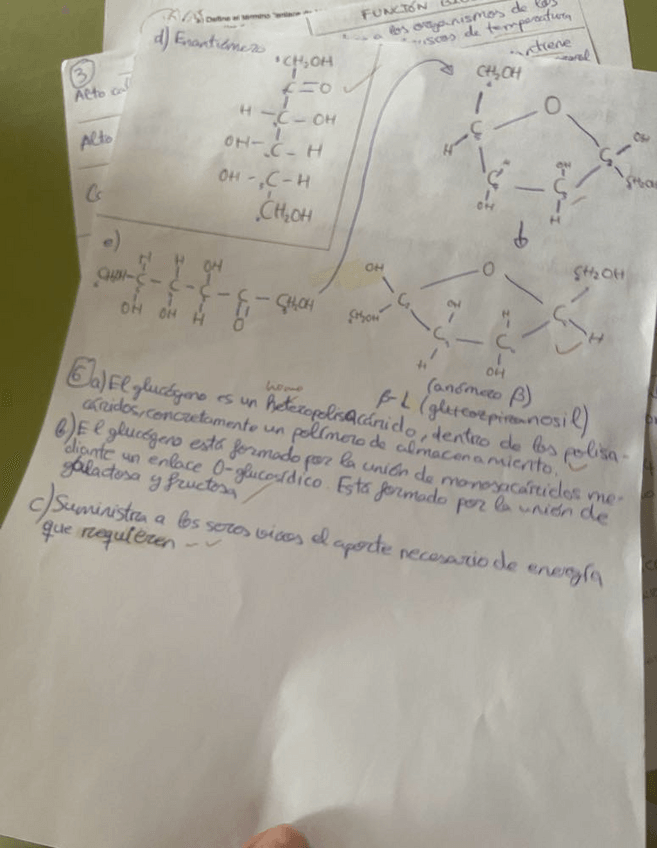 Define el término "enlace
FUNCIÓN
a los organismos de las
de temperatura
3
Alto
Alto
d) Enantiómero
CH₂OH
C=O
H - C - OH
OH - C - H
OH - C - H
CH₂OH
CH₂OH
O
C
C
H
OH
C
C
OH
OH
H
e)
H H OH
CH₂OH - C - C - C - C - CH₂OH
OH OH H O
OH
O
CH₂OH
C
C
CH₂OH
OH
H
H
C
C
H
OH
(anómero β)
β-L (glucopiranosil)
homo
6 a) El glucógeno es un Heteropolisacárido, dentro de los polisa-
cáridos, concretamente un polímero de almacenamiento.
b) El glucógeno está formado por la unión de monosacáridos me-
diante un enlace O-glucosídico. Está formado por la unión de
galactosa y fructosa
c) Suministra a los seres vivos el aporte necesario de energía
que requieren